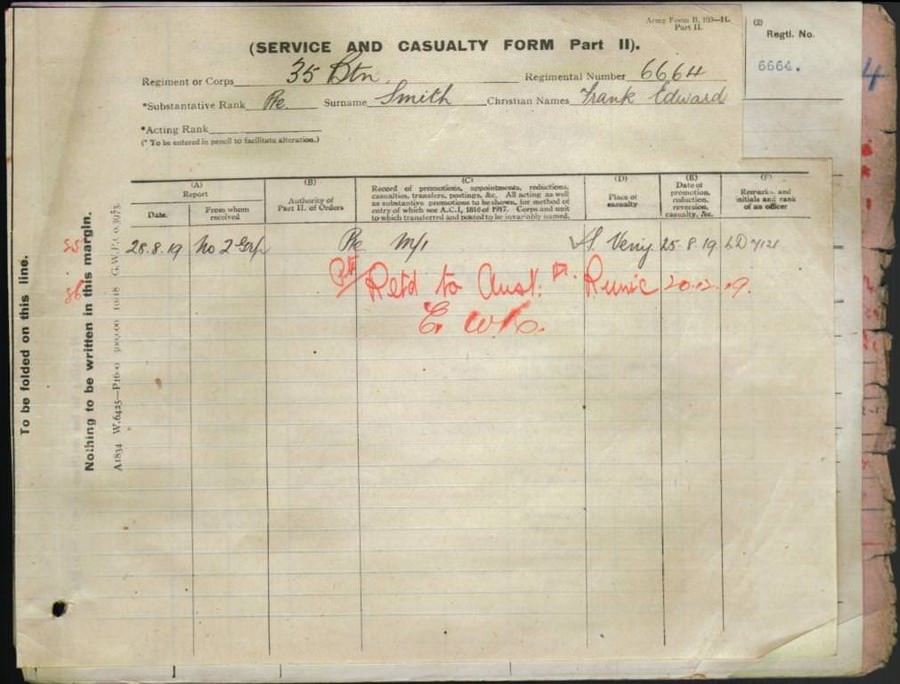 Army Form B. 103—II.
Part II.
(SERVICE AND CASUALTY FORM Part II).
(2)
Regtl. No.
6664.
4
Regiment or Corps 35 Btn. Regimental Number 6664
*Substantive Rank Pte Surname Smith Christian Names Frank Edward
*Acting Rank
(* To be entered in pencil to facilitate alteration.)
To be folded on this line.
Nothing to be written in this margin.
(A)
Report
Date.
From whom received
(B)
Authority of Part II. of Orders
(C)
Record of promotions, appointments, reductions,
casualties, transfers, postings, &c. All acting as well
as substantive promotions to be shown, for method of
entry of which see A.C.I., 1816 of 1917. Corps and unit
to which transferred and posted to be invariably named.
(D)
Place of casualty
(E)
Date of promotion, reduction, reversion, casualty, &c.
(F)
Remarks, and initials and rank of an officer
28.8.19 No 2 Grp Pte M/I S. Veny 25.8.19
Retd to Aust. Runic 20.12.19.